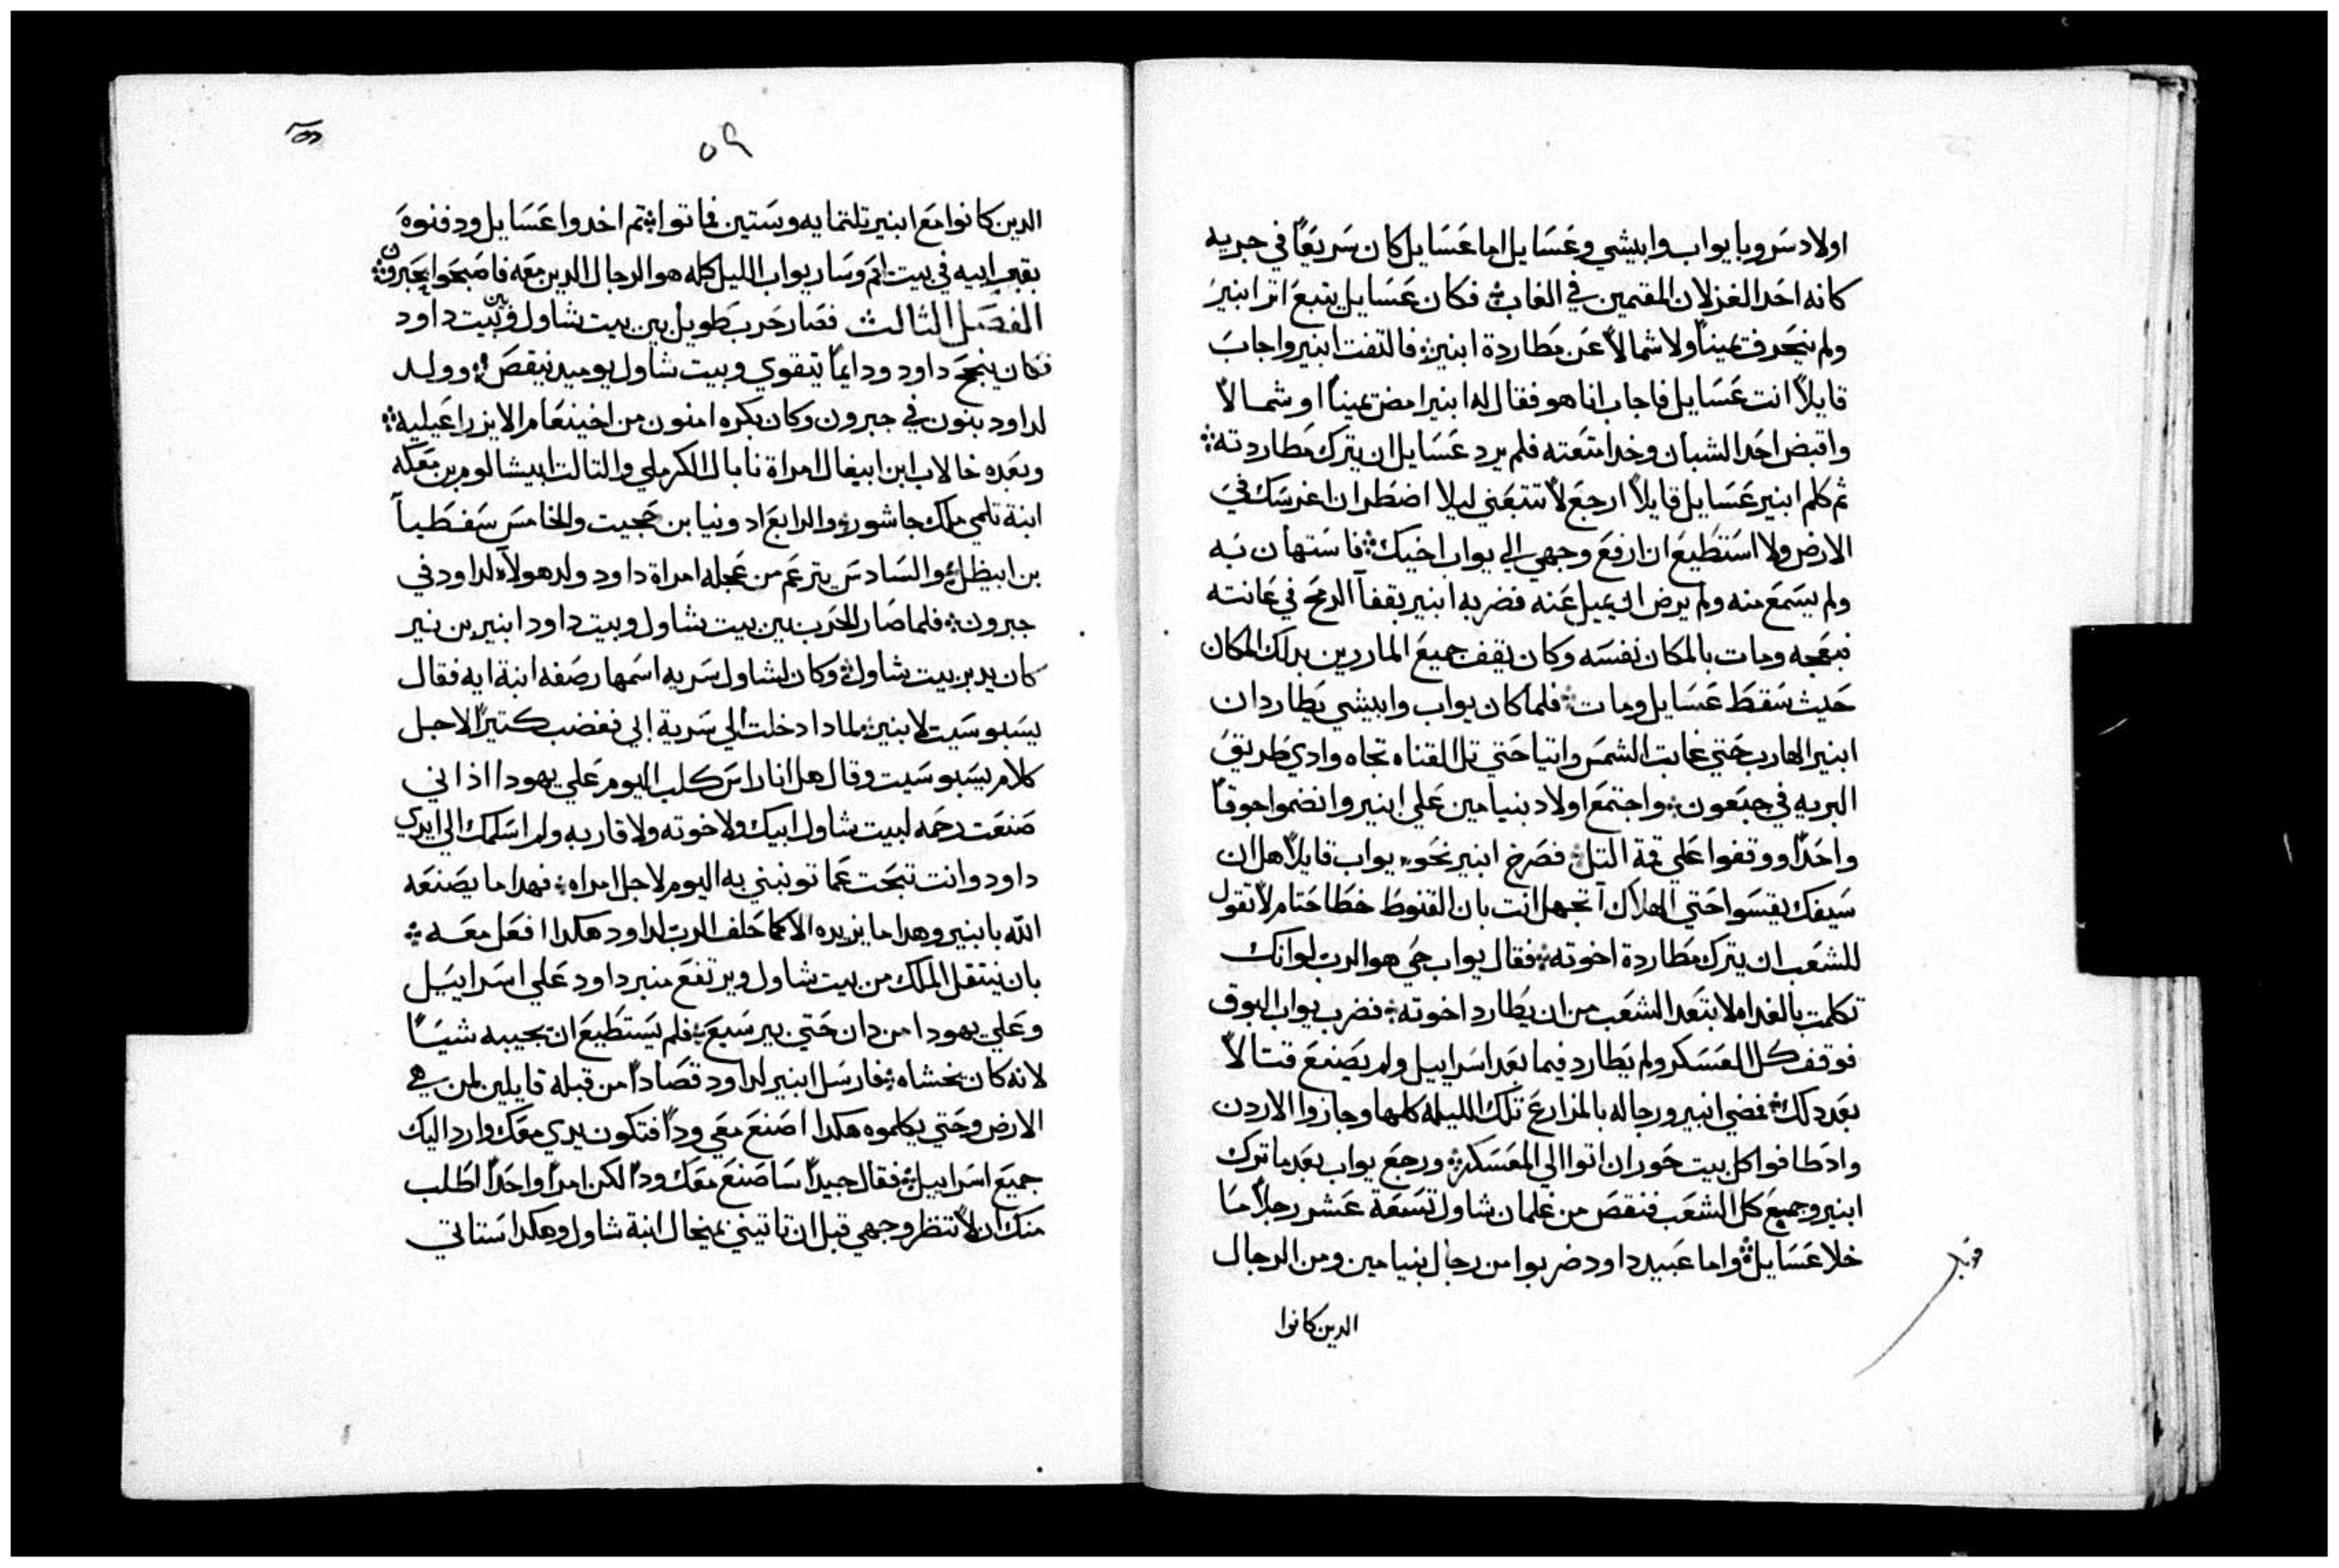 اولاد سرويا يواب وابيشي وعسايل اما عسايل كان سريعًا في جريه
كانه احد الغزلان المقيمين في الغاب فكان عسايل يتبع اتر ابنير
ولم ينحرف يمينًا ولا شمالًا عن مطاردة ابنير فالتفت ابنير واجاب
قايلًا انت عسايل فاجاب انا هو فقال له ابنير امض يمينًا او شمالًا
واقبض احد الشبان وخد امتعته فلم يرد عسايل ان يترك مطاردته
ثم كلم ابنير عسايل قايلًا ارجع لا تتبعني ليلا اضطر ان اغرسك في
الارض ولا استطيع ان ارفع وجهي الي يواب اخيك فاستهان به
ولم يسمع منه ولم يرض ان يميل عنه فضربه ابنير بقفا الرمح في عانته
فبعجه ومات بالمكان نفسه وكان يقف جميع الماررين بدلك المكان
حيث سقط عسايل ومات فلما كان يواب وابيشي يطاردان
ابنير الهارب حتي غابت الشمس واتيا حتي تل القناه تجاه وادي طريق
البريه في جبعون واجتمع اولاد بنيامين علي ابنير وانضموا جوقًا
واحدًا ووقفوا علي قمة التل فصرخ ابنير نحو يواب قايلًا هل ان
سيفك يقسوا حتي الهلاك اتجهل انت بان القنوط خطا حتام لا تقول
للشعب ان يترك مطاردة اخوته فقال يواب حي هو الرب لو انك
تكلمت بالغداه لابتعد الشعب من ان يطارد اخوته فضرب يواب البوق
فوقف كل العسكر ولم يطارد فيما بعد اسراييل ولم يصنع قتالًا
بعد دلك فمضي ابنير ورجاله بالمزارع تلك الليله كلها وجازوا الاردن
واد طافوا كل بيت حوران اتوا الي المعسكر ورجع يواب بعد ما ترك
ابنير وجميع كل الشعب فنقص من غلمان شاول تسعة عشر رجلًا ما
خلا عسايل واما عبيد داود ضربوا من رجال بنيامين ومن الرجال
الدين كانوا
٥٩
الدين كانوا مع ابنير تلتمايه وستين فماتوا ثم اخدوا عسايل ودفنوه
بقبر ابيه في بيت لحم وسار يواب الليل كله هو والرجال الدين معه فاصبحوا بحبرون
الفصل الثالث فصار حرب طويل بين بيت شاول وبين بيت داود
فكان ينجح داود ودايمًا يتقوي وبيت شاول يوميد ينقص وولد
لداود بنون في حبرون وكان بكره امنون من اخينعام الايزراعيليه
وبعده خالاب ابن ابيغال امراة نابال الكرملي والتالت ابيشالوم بن معكه
ابنة تلمي ملك جاشور والرابع ادونيا بن حجيت والخامس سفطيا
بن ابيطل والسادس يترعم من عجله امراة داود ولد هولاء لداود في
حبرون فلما صار الحرب بين بيت شاول وبيت داود ابنير بن نير
كان يدبر بيت شاول وكان لشاول سريه اسمها رصفه ابنة ايه فقال
يسبوسيت لابنير لمادا دخلت الي سرية ابي فغضب كتيرًا لاجل
كلام يسبوسيت وقال هل انا راس كلب اليوم علي يهودا اذ اني
صنعت رحمه لبيت شاول ابيك ولاخوته ولاقاربه ولم اسلمك الي ايدي
داود وانت تبحت عما توبنبي به اليوم لاجل امراه فهدا ما يصنعه
الله بابنير وهدا ما يزيده الا كما حلف الرب لداود هكدا افعل معه
بان ينتقل الملك من بيت شاول ويرتفع منبر داود علي اسراييل
وعلي يهودا من دان حتي بير سبع فلم يستطيع ان يجيبه شيًا
لانه كان يخشاه فارسل ابنير لداود قصادًا من قبله قايلين لمن هي
الارض وحتي يكلموه هكدا اصنع معي ودًا فتكون يدي معك وارد اليك
جميع اسراييل فقال جيدًا سا صنع معك ودًا لكن امرًا واحدًا اطلب
منك ان لا تنظر وجهي قبل ان تاتيني بميخال ابنة شاول وهكدا ستاتي